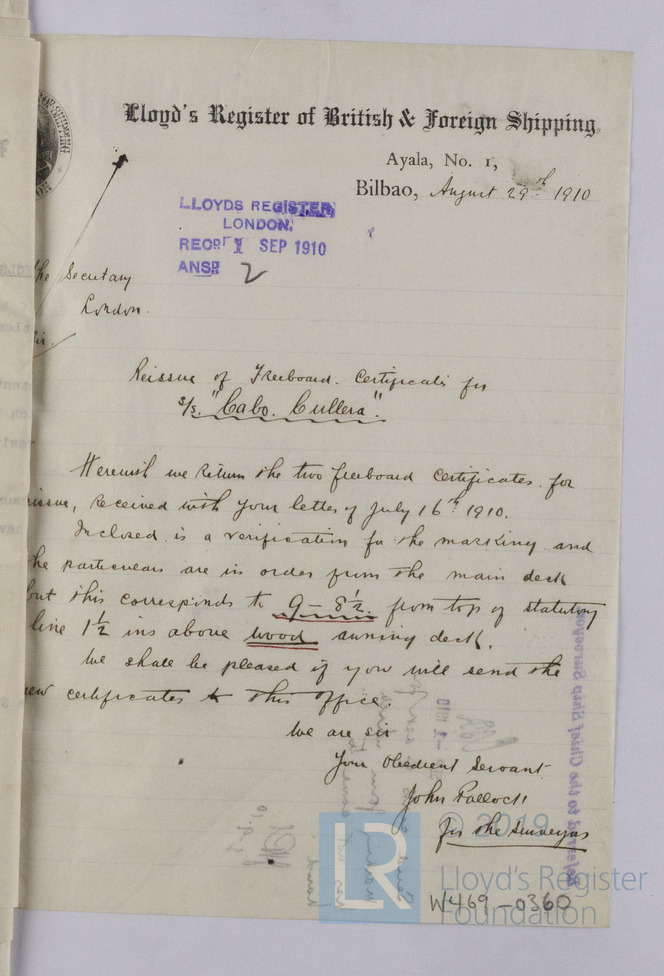 Lloyd's Register of British & Foreign Shipping,
Ayala, No. 1,
Bilbao, August 29th 1910
LLOYDS REGISTER
LONDON.
RECD 1 SEP 1910
ANSD 2
the Secretary
London.
Sir.
Reissue of Freeboard Certificate for
s/s. "Cabo Cullera".
Herewith we return the two freeboard certificates for
issue, received with your letter of July 16th 1910.
Inclosed is a verification for the marking and
the particulars are in order from the main deck
but this corresponds to 9 - 8½ from top of statutory
line 1½ ins above wood awning deck.
We shall be pleased if you will send the
new certificates to this office.
We are sir
Your Obedient Servant
John Pollock
for the surveyors
Referred to the Chief Ship Surveyor
© 2019
LR
Lloyd's Register
Foundation
W469-0360